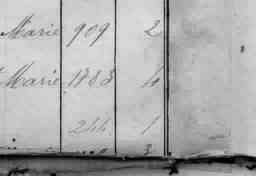 Marie 909 2
Marie 1883 4
244 1
3